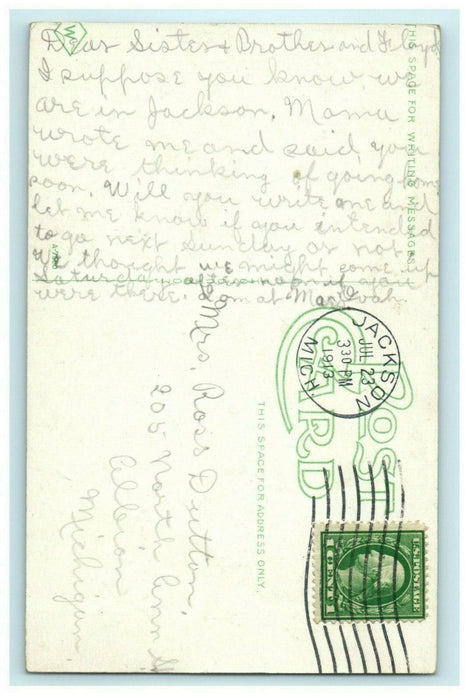 Dear Sister & Brother and Floyd
I suppose you know we
are in Jackson. Mama
wrote me and said you
were thinking of going home
soon. Will you write me and
let me know if you intended
to go next Sunday or not
We thought we might come up
Saturday afternoon if you
were there. I am at
Mrs. Ross Dutton,
205 North Ann St
Albion
Michigan
THIS SPACE FOR WRITING MESSAGES
POST
CARD
THIS SPACE FOR ADDRESS ONLY.
JACKSON
JUL 23
3 30 PM
1913
MICH.
U.S. POSTAGE
1 CENT 1